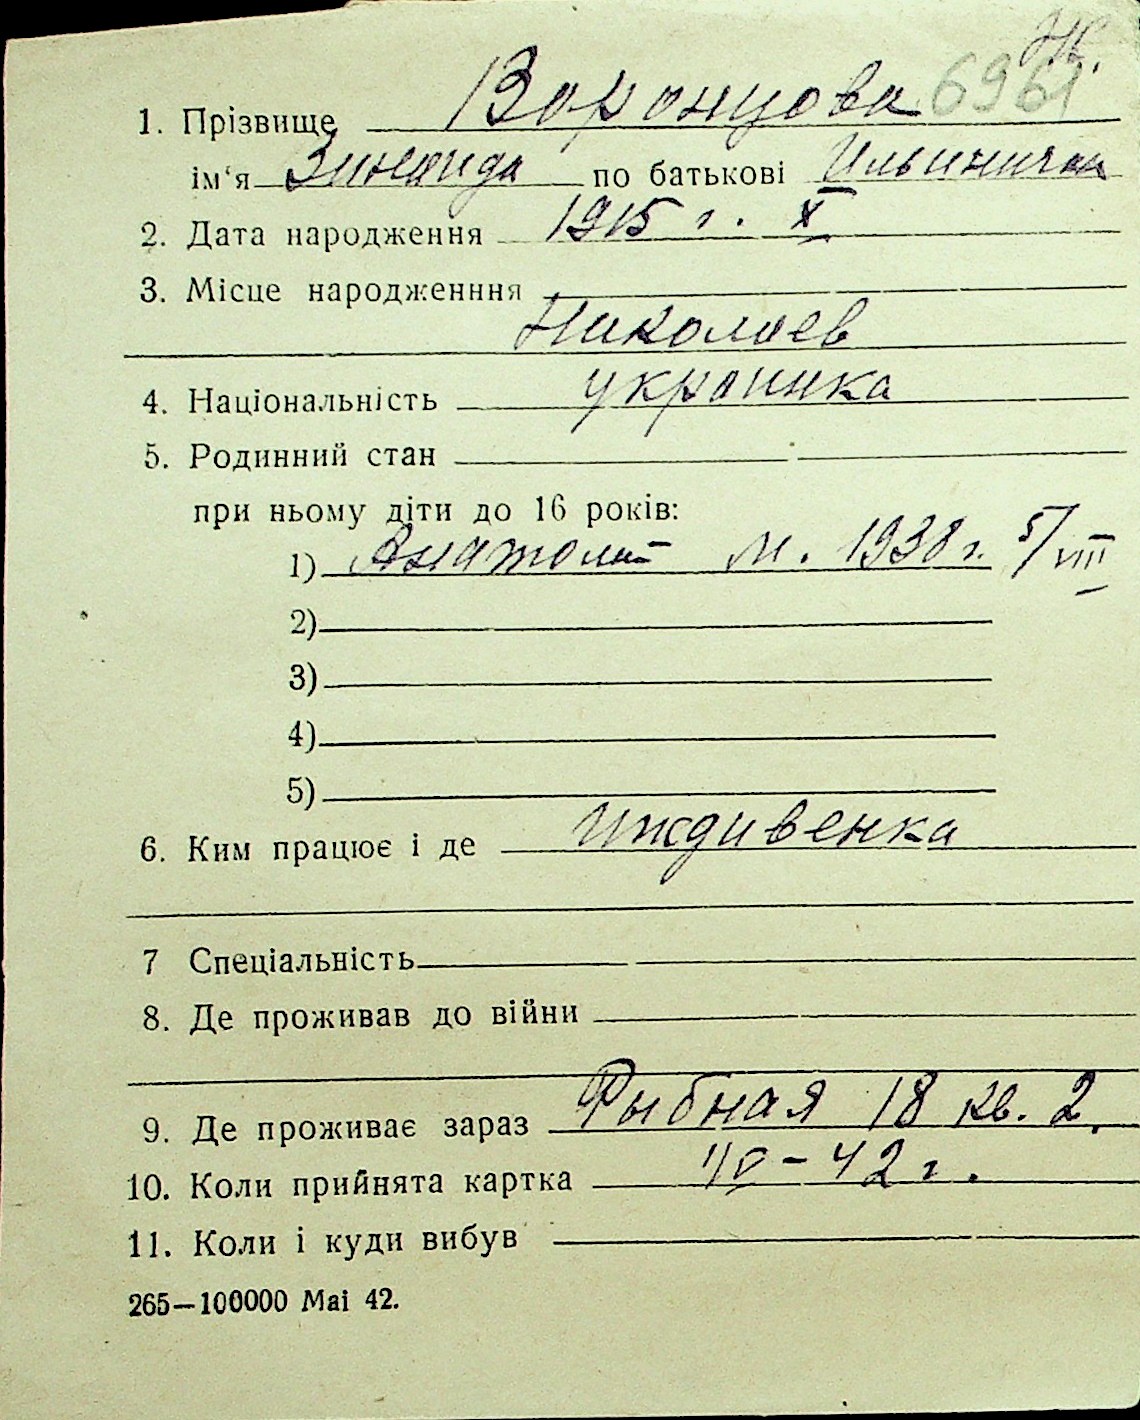 Ж.
6961
1. Прізвище Воронцова
ім‘я Зинаида по батькові Ильинична
2. Дата народження 1915 г. X
3. Місце народженння
Николаев
4. Національність украинка
5. Родинний стан
при ньому діти до 16 років:
1) Анатолий м. 1938 г. 5/VIII
2)
3)
4)
5)
6. Ким працює і де Иждивенка
7 Спеціальність
8. Де проживав до війни
9. Де проживає зараз Рыбная 18 кв. 2.
10. Коли прийнята картка IV-42 г.
11. Коли і куди вибув
265—100000 Mai 42.